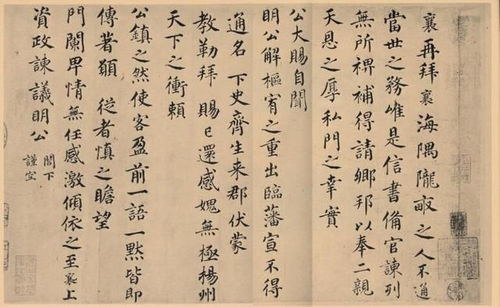 襄再拜襄海隅隴畝之人不通
當世之務唯是信書備官諫列
無所裨補得請鄉邦以奉二親
天恩之厚私門之幸實
公大賜自聞
明公解樞宥之重出臨藩宣不得
通名下史齊生來郡伏蒙
教勒拜賜已還感媿無極楊州
天下之衝賴
公鎮之然使客盈前一語一默皆即
傳者願從者慎之瞻望
門闌卑情無任感激傾依之至襄上
資政諫議明公閤下
謹空